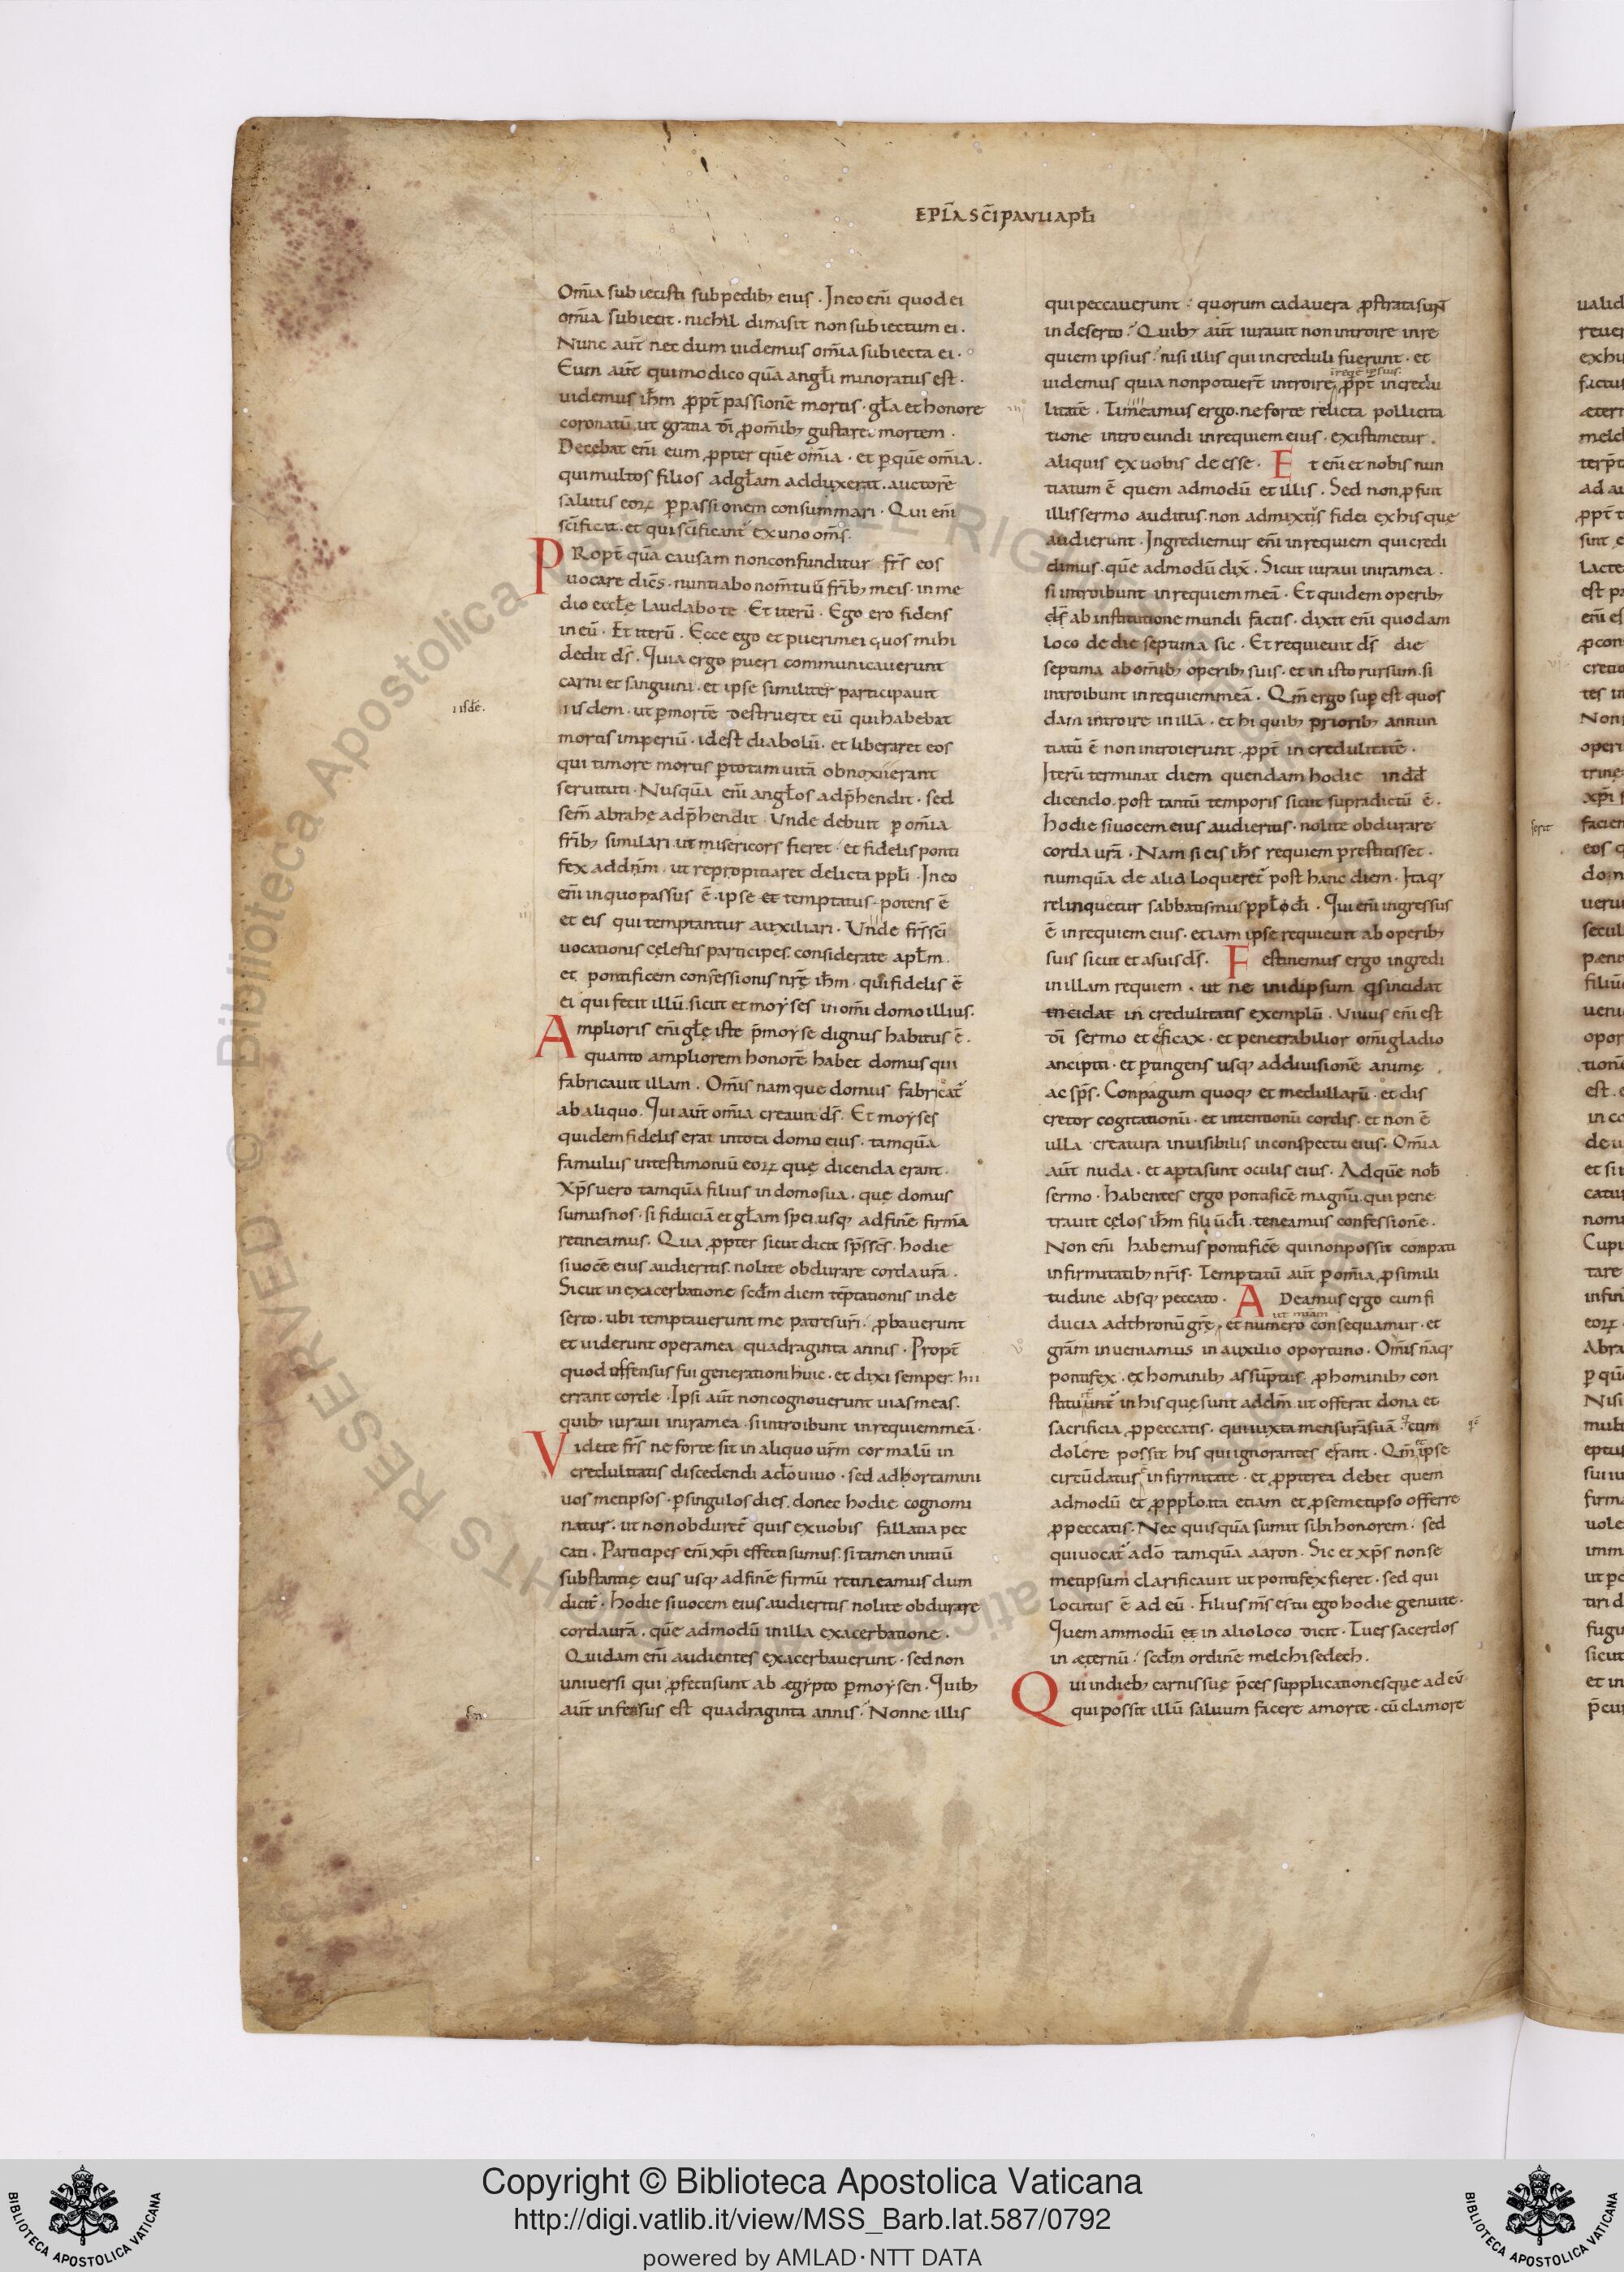 EPL̄A SC̄I PAVLI APL̄I
Om̄ia subiecisti sub pedib; eius . In eo enī quod ei
om̄ia subiecit . nichil dimisit non subiectum ei .
Nunc aūt nec dum uidemus om̄ia subiecta ei .
Eum aūt qui modico quā angłi minoratus est .
uidemus ih̄m ꝓpt̄ passionē mortis . gła et honore
coronatū . ut gratia dī ꝓ om̄ib; gustaret mortem .
Decebat enī eum ꝓpter quē om̄ia . et ꝑ quē om̄ia .
qui multos filios ad głam adduxerat . auctorē
salutis eoꝝ ꝑ passionem consummari . Qui enī
sc̄ificat . et qui sc̄ificant᷑ ex uno om̄s .
PRopt̄ quā causam non confunditur fr̄s eos
uocare dicēs . nuntiabo nom̄ tuū fr̄ib; meis . in me
dio eccłę laudabo te . Et iterū . Ego ero fidens
in eū . Et iterū . Ecce ego et pueri mei quos mihi
dedit ds̄ . Quia ergo pueri communicauerunt
carni et sanguini . et ipse similiter participauit
iisdē .
iisdem . ut ꝑ mortē destrueret eū qui habebat
mortis imperiū . id est diabolū . et liberaret eos
qui timore mortis ꝑ totam uitā obnoxii erant
seruituti . Nusquā enī angłos adp̄hendit . sed
sem̄ abrahę adp̄hendit . Unde debuit ꝑ om̄ia
fr̄ib; similari . ut misericors fieret . et fidelis ponti
fex ad dn̄m . ut repropitiaret delicta ppłi . In eo
enī in quo passus ē . ipse et temptatus . potens ē
et eis qui temptantur auxiliari . Unde fr̄s sc̄i
uocationis cęlestis participes . considerate apłm .
et pontificem confessionis nr̄ę ih̄m . qui fidelis ē
ei qui fecit illū . sicut et moyses in om̄i domo illius .
Amplioris enī głę iste p̄ moyse dignus habitus ē .
quanto ampliorem honorē habet domus qui
fabricauit illam . Om̄is nam que domus fabricat᷑
ab aliquo . Qui aūt om̄ia creauit ds̄ . Et moyses
quidem fidelis erat in tota domo eius . tamquā
famulus in testimoniū eoꝝ quę dicenda erant .
Xp̄s uero tamquā filius in domo sua . quę domus
sumus nos . si fiduciā et głam spei usq; ad finē firmā
retineamus . Qua ꝓpter sicut dicit sp̄s sc̄s . hodie
si uocē eius audieritis . nolite obdurare corda ur̄a .
Sicut in exacerbatione secđm diem tēptationis in de
serto . ubi temptauerunt me patres ur̄i . ꝓbauerunt
et uiderunt opera mea quadraginta annis . Propt̄
quod offensus fui generationi huic . et dixi semper hii
errant corde . Ipsi aūt non cognouerunt uias meas .
quib; iuraui in ira mea . si introibunt in requiem meā .
Videte fr̄s ne forte sit in aliquo ur̄m cor malū in
credulitatis discedendi a dō uiuo . sed adhortamini
uos metipsos . ꝑ singulos dies . donec hodie cognomi
natur . ut non obduret᷑ quis ex uobis fallatia pec
cati . Participes enī xp̄i effecti sumus . si tamen initiū
substantię eius usq; ad finē firmū retineamus dum
dicit᷑ . hodie si uocem eius audieritis nolite obdurare
corda ur̄a . quē admodū in illa exacerbatione .
Quidam enī audientes exacerbauerunt . sed non
uniuersi qui ꝓfecti sunt ab ęgypto ꝑ moysen . Quib;
aūt infensus est quadraginta annis . Nonne illis
qui peccauerunt . quorum cadauera ꝓstrata sunt
in deserto . Quib; aūt iurauit non introire in re
quiem ipsius . nisi illis qui increduli fuerunt . et
uidemus quia non potuert̄ introire ꝓpt̄ incredu
litatē . Timeamus ergo . ne forte relicta pollicita
tione introeundi in requiem eius . existimetur .
aliquis ex uobis de esse . Et enī et nobis nun
tiatum ē quem admodū et illis . Sed non ꝓfuit
illis sermo auditus . non admixtis fidei ex his quę
audierunt . Ingrediemur enī in requiem qui credi
dimus . quē admodū dix̄ . Sicut iuraui in ira mea .
si introibunt in requiem meā . Et quidem operib;
ds̄ ab institutione mundi factis . dixit enī quodam
loco de die septima sic . Et requieuit ds̄ die
septima ab om̄ib; operib; suis . et in isto rursum . si
introibunt in requiem meā . Qm̄ ergo suꝑ est quos
dam introire in illā . et hi quib; priorib; annun
tiatū ē non introierunt . ꝓpt̄ incredulitatē .
Iterū terminat diem quendam hodie in dđ
dicendo . post tantū temporis sicut supradictū ē .
hodie si uocem eius audieritis . nolite obdurare
corda ur̄a . Nam si eis ih̄s requiem prestitisset .
numquā de alia loqueret᷑ post hanc diem . Itaq;
relinquetur sabbatismus ppło dī . Qui enī ingressus
ē in requiem eius . etiam ipse requieuit ab operib;
suis sicut et a suis ds̄ . Festinemus ergo ingredi
in illam requiem . ut ne in idipsum quis incidat
incidat in credulitatis exemplū . Viuus enī est
dī sermo et eficax . et penetrabilior om̄i gladio
ancipiti . et ꝑtingens usq; ad diuisionē animę .
ac sp̄s . Conpagum quoq; et medullarū . et dis
cretor cogitationū . et intentionū cordis . et non ē
ulla creatura inuisibilis in conspectu eius . Om̄ia
aūt nuda . et aꝑta sunt oculis eius . Ad quē nob̄
sermo . habentes ergo pontificē magnū . qui pene
trauit cęlos ih̄m filiū dī . teneamus confessionē .
Non enī habemus pontificē qui non possit compati
infirmitatib; nr̄is . Temptatū aūt ꝑ om̄ia ꝓ simili
tudine absq; peccato . ADeamus ergo cum fi
ut mīam
ducia ad thronū gr̄ę . et numero consequamur . et
gr̄am inueniamus in auxilio oportuno . Om̄is nāq;
pontifex . ex hominib; assūptus . ꝓ hominib; con
stituunt᷑ in his quę sunt ad dm̄ . ut offerat dona et
sacrificia . ꝓ peccatis . qui iuxta mensurā suā . cum
dolere possit his qui ignorantes errant . Qm̄ ipse
circūdatus infirmitate . et ꝓpterea debet quem
admodū et ꝓ ppło . ita etiam et ꝓ semetipso offerre
ꝓ peccatis . Nec quisquā sumit sibi honorem . sed
qui uocat᷑ a dō tamquā aaron . Sic et xp̄s non se
metipsum clarificauit ut pontifex fieret . sed qui
locutus ē ad eū . Filius ms̄ es tu ego hodie genui te .
Quem ammodū et in alio loco dicit . Tu es sacerdos
in æternū . secđm ordinē melchisedech .
Qui in dieb; carnis suę p̄ces supplicationesque ad eū
qui possit illū saluum facere a morte . cū clamore
Copyright © Biblioteca Apostolica Vaticana
http://digi.vatlib.it/view/MSS_Barb.lat.587/0792
powered by AMLAD·NTT DATA
BIBLIOTECA APOSTOLICA VATICANA
BIBLIOTECA APOSTOLICA VATICANA